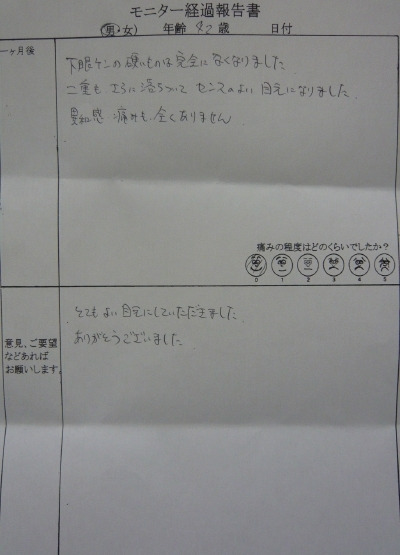 モニター経過報告書
(男・女) 年齢 42 歳 日付
一ヶ月後
下眼ケンの硬いものは完全になくなりました
二重も さらに落ちついて センスのよい 目元になりました
異和感 痛みも 全くありません
痛みの程度はどのくらいでしたか?
0 1 2 3 4 5
意見、ご要望
などあれば
お願いします。
とても よい 目元にしていただきました
ありがとうございました